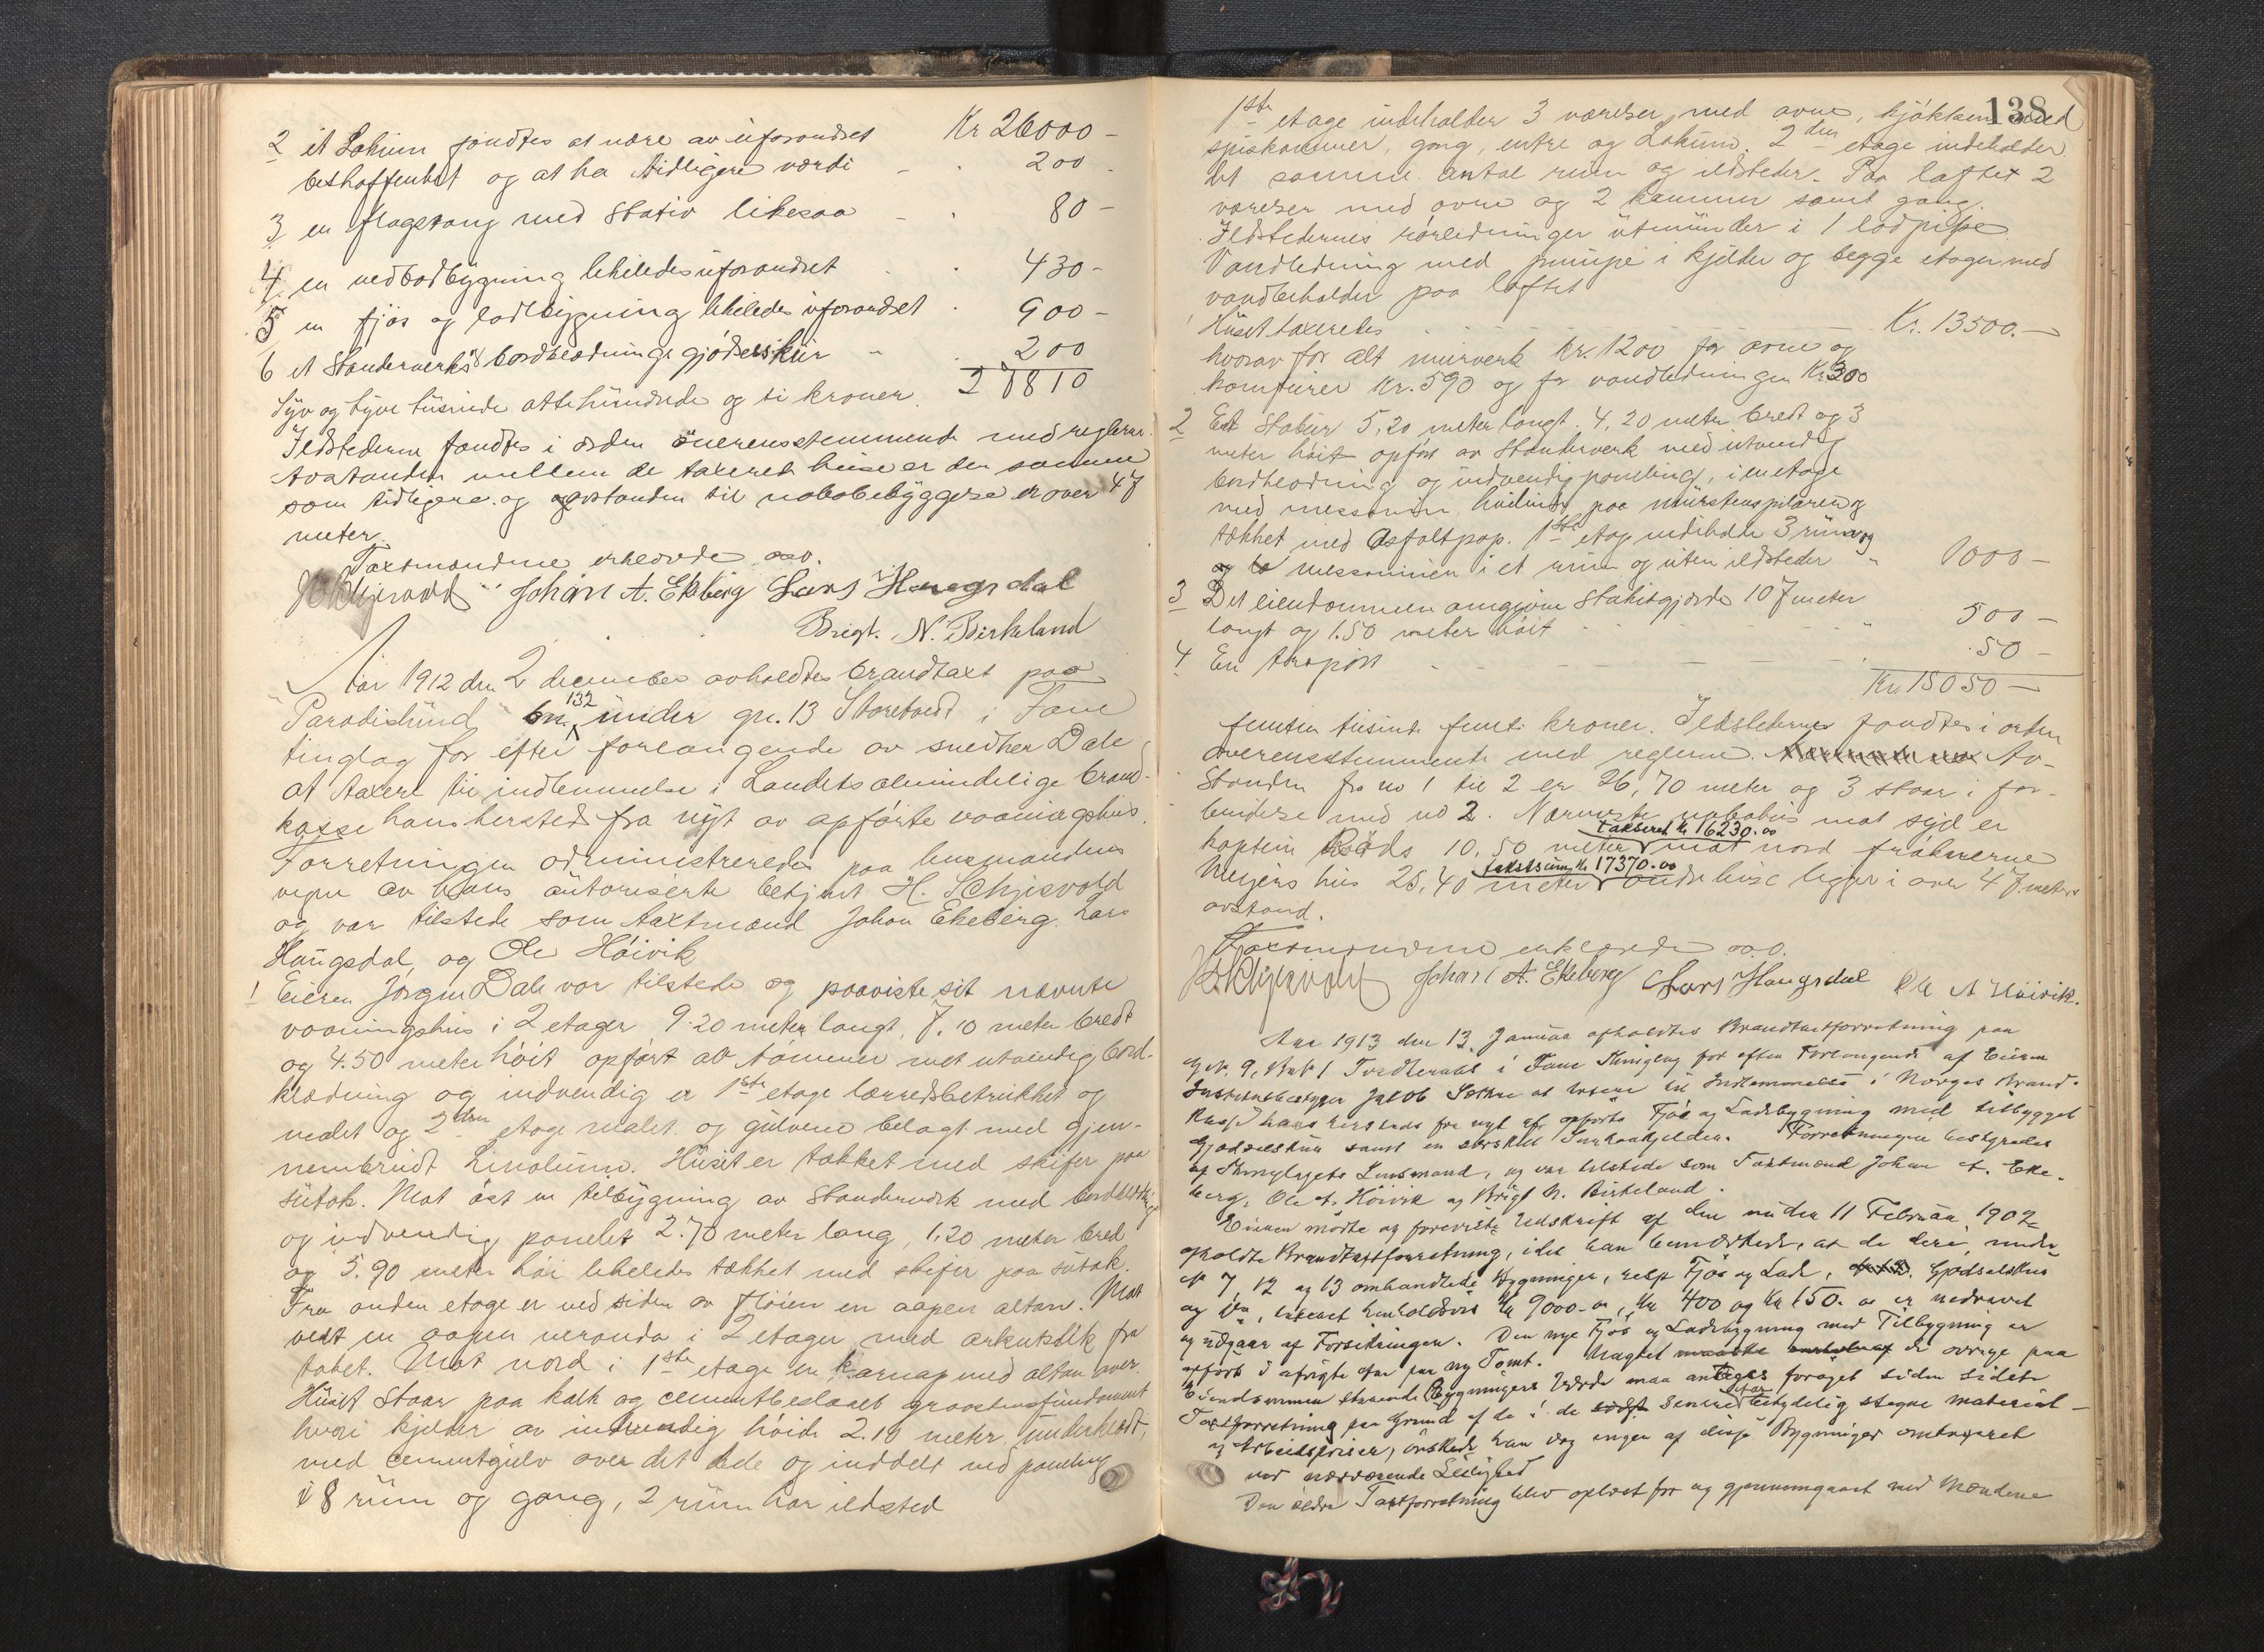 2 et Lokum fandtes at være av uforandret Kr 26000 -
beskaffenhet og at ha tidligere værdi - . 200 -
3 en flagstang med stativ likesaa - . 80 -
4 en vedbodbygning likeledes uforandret . 430 -
5 en fjøs og ladebygning likeledes uforandret . 900 -
6 et Standerverks bordklædnings gjødselskur " . 200
Syv og tyve tusinde ottehundrede og ti kroner. 27810
Ildstederne fandtes i orden överensstemmende med reglerne.
Avstanden mellem de taxerede huse er den samme
som tidligere og avstanden til nabobebyggelse er over 47
meter.
Taxtmændene erklærede o.s.v.
Johan A. Ekeberg Lars Haugsdal
Brigt. N. Birkeland
Aar 1912 den 2 december avholdtes brandtaxt paa
"Paradislund" bn. 132 under gn. 13 Storetvedt i Fane
tinglag for efter forlangende av snedker Dale
at taxere til indlemmelse i Landets almindelige brand-
kasse hans hersteds fra nyt av opførte vaaningshus.
Forretningen administreredes paa lensmandens
vegne av hans autoriserte betjent H. Schjesvold
og var tilstede som taxtmænd Johan Ekeberg. Lars
Haugsdal, og Ole Høivik
1 Eieren Jørgen Dale var tilstede og paaviste sit nævnte
vaaningshus i 2 etager 9.20 meter langt, 7.10 meter bredt
og 4.50 meter høit opført av tømmer met utvendig bord-
klædning og indvendig er 1ste etage lærredsbetrukket og
malet og 2den etage malet og gulvene belagt med gjen-
nembrudt Linolium. Huset er tækket med skifer paa
sutak. Mot øst en tilbygning av Standerverk med bordklædning
og indvendig panelet 2.70 meter lang, 1.20 meter bred
og 5.90 meter høi likeledes tækket med skifer paa sutak.
Fra anden etage er ved siden av fløien en aapen altan. Mot
vest en aapen veranda i 2 etager med arkutstik fra
taket. Mot nord i 1ste etage en karnap med altan over.
Huset staar paa kalk og cementbeslaaet graastensfundament
hvori kjelder av indvendig høide 2.10 meter, underklædt,
med cementgulv over det hele og inddelt ved paneling
i 8 rum og gang, 2 rum har ildsted
138
1ste etage indeholder 3 værelser med ovne, kjøkken med
spiskammer, gang, entre og Lokum. 2den etage indeholder
det samme antal rum og ildsteder. Paa loftet 2
værelser med ovne og 2 kammer samt gang.
Ildstedernes rørledninger utmunder i 1 lodpipe.
Vandledning med pumpe i kjelder og begge etager med
vandbeholder paa loftet
Huset taxeredes Kr. 13500.-
hvorav for alt murverk kr. 1200 for ovne og
komfurer kr. 590 og for vandledningen Kr 300
2 Et Stabur 5.20 meter langt. 4.20 meter bredt og 3
meter høit opført av Standerverk med utvendig
bordklædning og indvendig paneling, i en etage
med messanin, hvilende paa murstenspilarer og
tækket med Asfaltpap. 1ste etage indeholder 3 rum og
messaninen i et rum og uten ildsteder " 1000 -
3 Det eiendommen omgivne Stakitgjærde 107 meter
langt og 1.50 meter høit " 500 -
4 En træport . 50 -
Kr. 15050 -
femten tusinde femti kroner. Ildstederne fandtes i orden
överensstemmende med reglerne. Av-
standen fra no 1 til 2 er 26,70 meter og 3 staar i for-
bindelse med no 2. Nærmeste nabohus mot syd er
taxseret kr 16230.00
kaptein Röds 10.50 meter mot nord frøknerne
takstsum Kr 17370.00
Meijers hus 25,40 meter andre huse ligger i over 47 meters
avstand.
Taxtmændene erklærede o.s.v.
Johan A. Ekeberg Lars Haugsdal Ole A Høivik.
Aar 1913 den 13. Januar afholdtes Brandtaxtforretning paa
G.N. 9, B.N. 1 Tvedteraas i Fane Thinglag for efter Forlangende af Eieren
Jakob at taxere til Indlemmelse i Norges Brand-
kasse hans hersteds fra nyt af opførte Fjøs og Ladebygning med tilbygget
Gjødselskur samt en særskilt. Forretningen bestyredes
af Thinglagets Lensmand, og var tilstede som Taxtmænd Johan A. Eke-
berg, Ole A. Høivik og Brigt N. Birkeland.
Eieren mødte og foreviste Udskrift af den under 11 Februar 1902
afholdte Brandtaxtforretning, idet han bemærkede, at de deri, under
No 7, 12 og 13 omhandlede Bygninger, resp Fjøs og Lade, Gjødselskur
og, taxeret henholdsvis Kr 9000.00, Kr 400 og Kr 150.00 er nedrevet
og udgaar af Forsikringen. Den nye Fjøs og Ladebygning med Tilbygning er
opført paa ny Tomt. de øvrige paa
Eiendommen staaende Bygningers Værdi maa antages forøget siden sidste
Taxtforretning paa Grund af de i de senere Aar betydelig stegne material-
og Arbeidspriser, ønskede han dog ingen af disse Bygninger omtaxeret
ved nærværende Leilighed
Den ældre Taxtforretning blev oplæst for og gjennemgaaet med Mændene